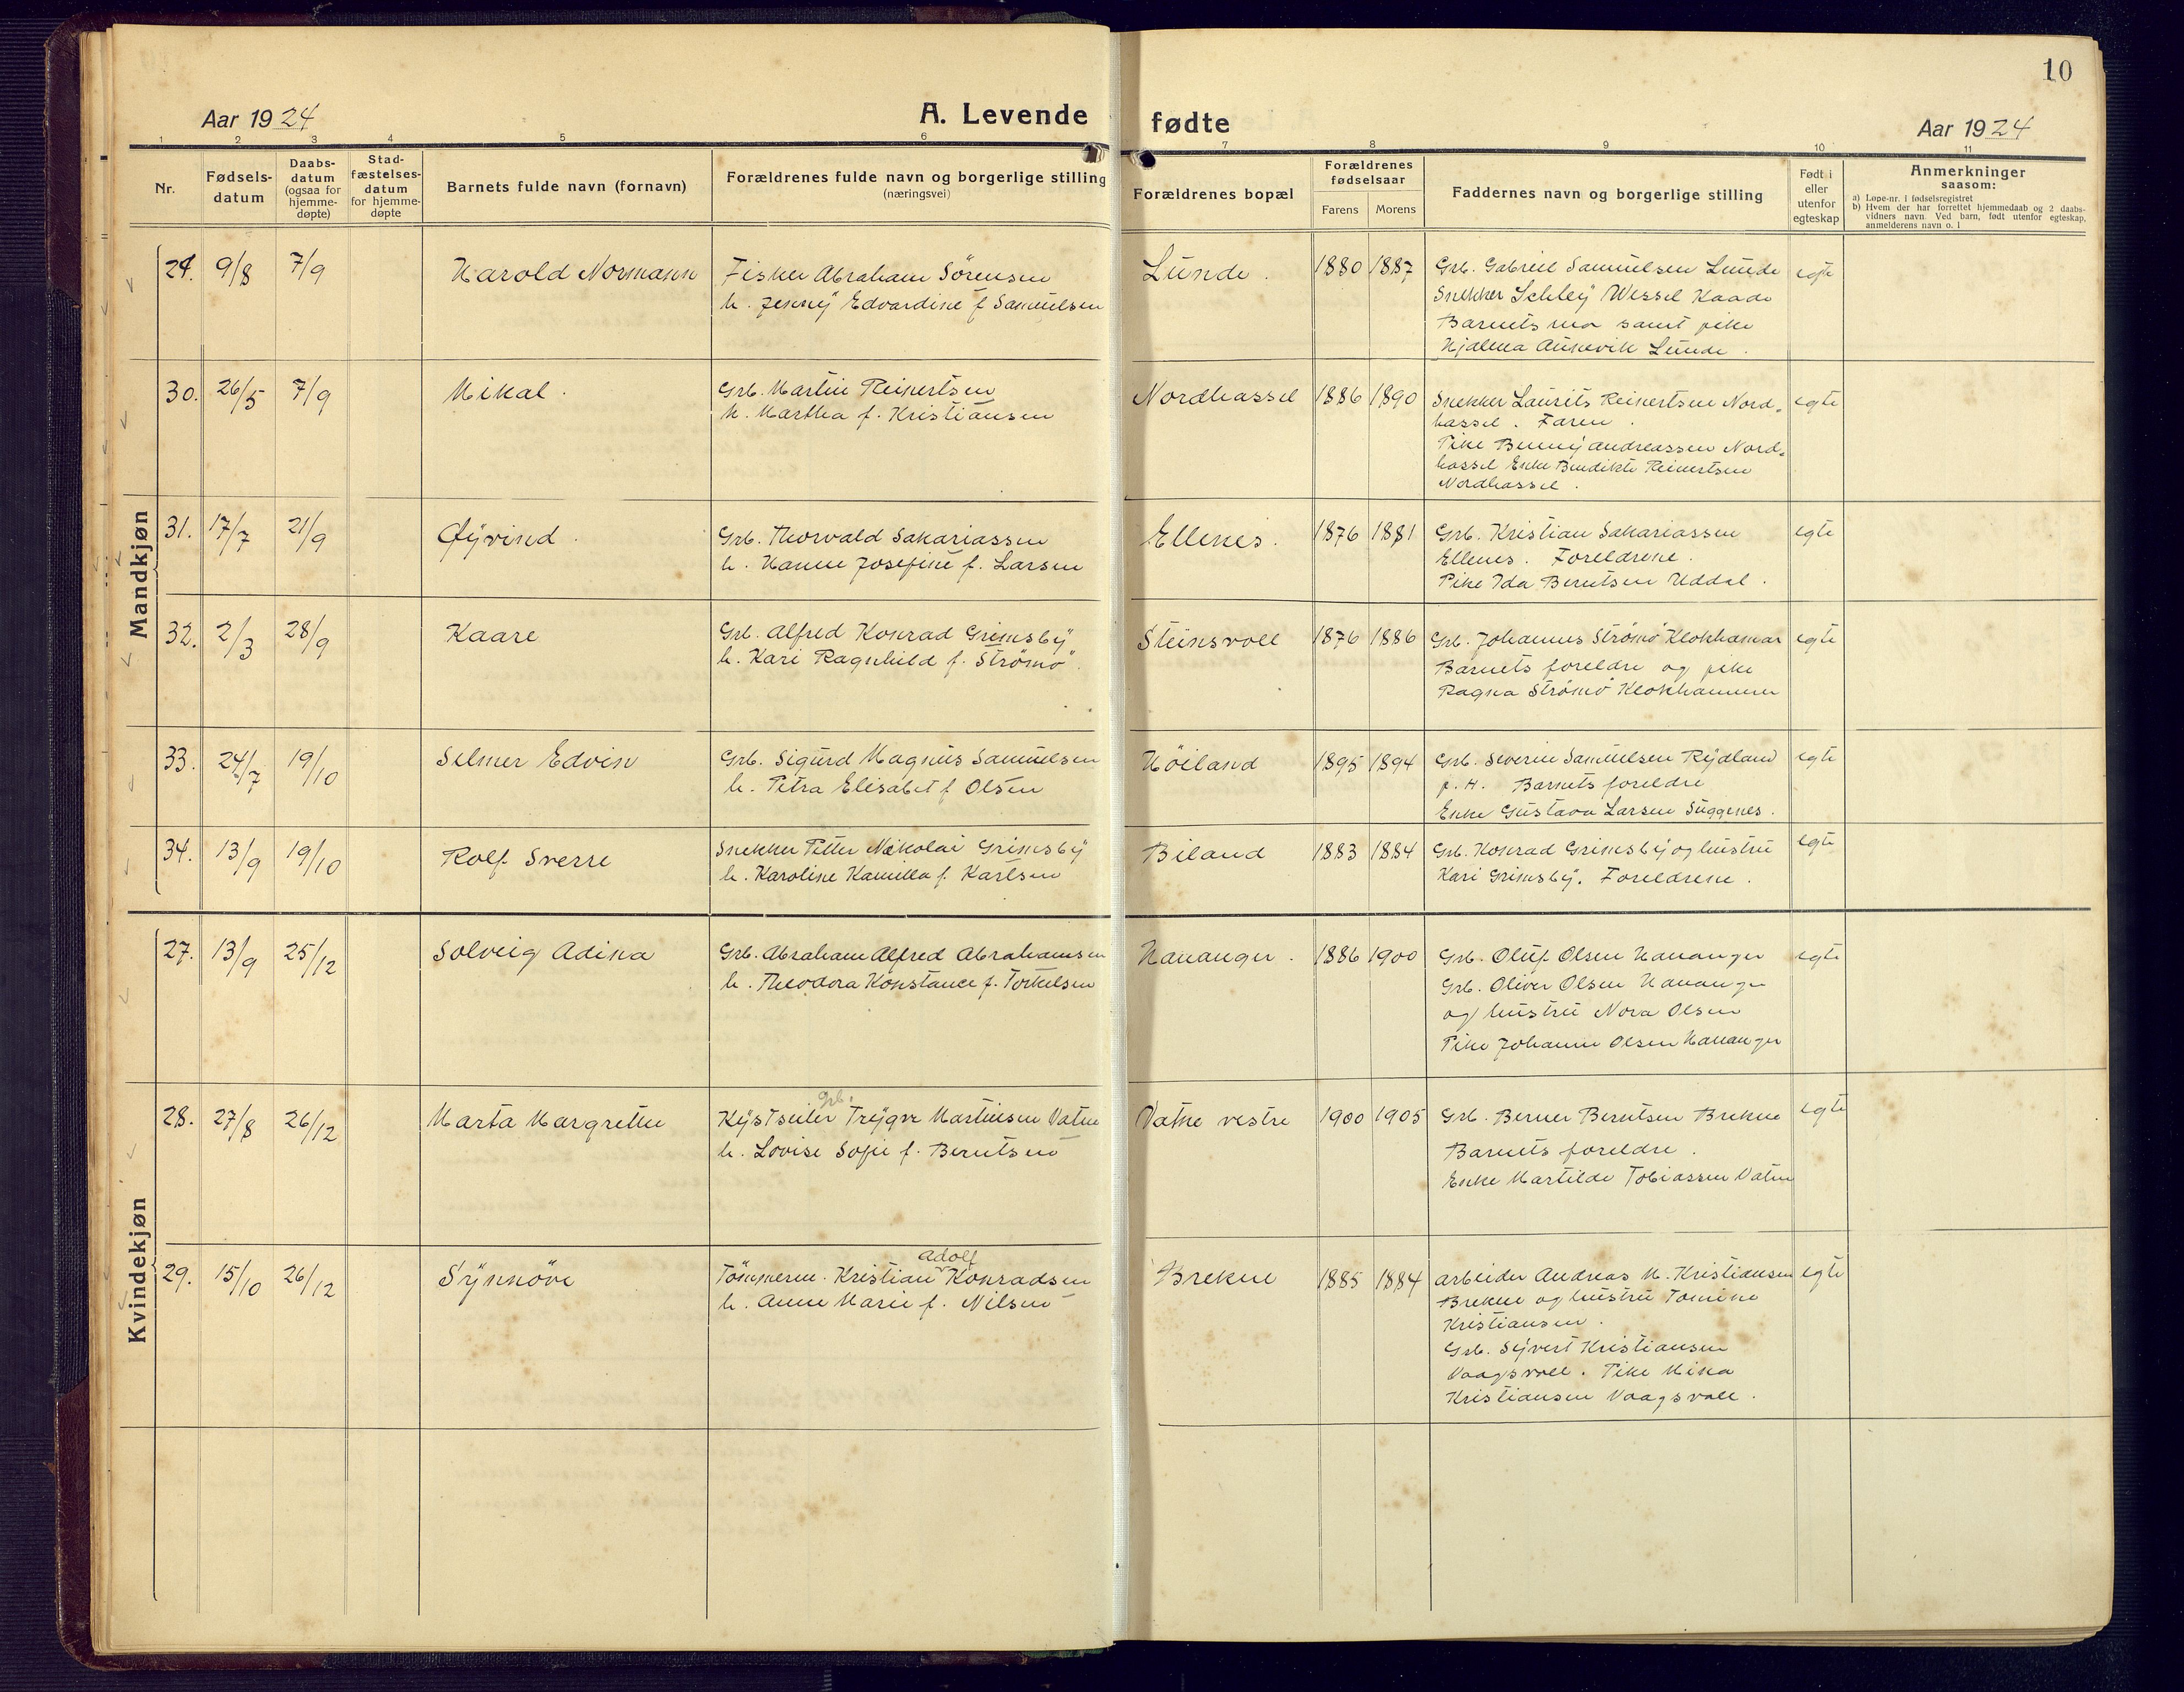 10
Aar 1924
A. Levende fødte
Aar 1924
1 2 3 4 5 6 7 8 9 10 11
Nr.
Fødsels-
datum
Daabs-
datum
(ogsaa for
hjemme-
døpte)
Stad-
fæstelses-
datum
for hjemme-
døpte
Barnets fulde navn (fornavn)
Forældrenes fulde navn og borgerlige stilling
(næringsvei)
Forældrenes bopæl
Forældrenes
fødselsaar
Farens Morens
Faddernes navn og borgerlige stilling
Født i
eller
utenfor
egteskap
Anmerkninger
saasom:
a) Løpe-nr. i fødselsregistret
b) Hvem der har forrettet hjemmedaab og 2 daabs-
vidners navn. Ved barn, født utenfor egteskap,
anmelderens navn o. l
Mandkjøn
29. 9/8 7/9 Harold Normann
Fisker Abraham Sörensen
h. Jenny Edvardine f Samuelsen
Lunde. 1880 1887
Grb. Gabriel Samuelsen Lunde
Snekker Schley Wessel Kaade
Barnets mor samt pike
Hjalma Aunevik Lunde.
egte
30. 26/5 7/9 Mikal.
Grb. Martin Reinertsen
h. Martha f. Kristiansen
Nordhassel 1886 1890
Snekker Laurits Reinertsen Nord-
hassel. Faren.
Pike Benny Andreassen Nord-
hassel Enke Bendikte Reinertsen
Nordhassel.
egte
31. 17/7 21/9 Øyvind.
Grb. Thorvald Sakariassen
h. Hanne Josefine f. Larsen
Ellenes. 1876 1881
Grb. Kristian Sakariassen
Ellenes. Foreldrene.
Pike Ida Berntsen Uddal.
egte
32. 2/3 28/9 Kaare
Grb. Alfred Konrad Grimsby
h. Kari Ragnhild f. Strömö.
Steinsvoll 1876 1886
Grb. Johannes Strömö Klokhamar
Barnets foreldre og pike
Ragna Strömö Klokhammer
egte
33. 24/7 19/10 Selmer Edvin
Grb. Sigurd Magnus Samuelsen
h. Petra Elisabet f Olsen
Höiland 1895 1894
Grb. Severin Samuelsen Rydland
p. H. Barnets foreldre
Enke Gustava Larsen Suggenes.
egte
34. 13/9 19/10 Rolf Sverre
Snekker Petter Nikolai Grimsby
h. Karoline Kamilla f. Karlsen
Biland 1883 1884
Grb. Konrad Grimsby og hustru
Kari Grimsby. Foreldrene.
egte
Kvindekjøn
27. 13/9 25/12 Solveig Adina
Grb. Abraham Alfred Abrahamsen
h. Theodora Konstance f. Torkelsen
Hananger. 1886 1900
Grb. Oluf Olsen Hananger
Grb. Oliver Olsen Hananger
og hustru Nora Olsen
Pike Johanne Olsen Hananger
egte
28. 27/8 26/12 Marta Margrethe
Grb.
Kystseiler Trygve Martinsen Vatne
h. Lovise Sofie f. Berntsen
Vatne vestre 1900 1905
Grb. Berner Berntsen Brekne
Barnets foreldre.
Enke Martilde Tobiassen Vatne
egte
29. 15/10 26/12 Synnöve
Adolf
Tömmerm. Kristian Konradsen
h. Anne Marie f. Nilsen
Brekne 1885 1884
Arbeider Andreas M. Kristiansen
Brekne og hustru Tomine
Kristiansen.
Grb. Syvert Kristiansen
Vaagsvoll. Pike Mina
Kristiansen Vaagsvoll.
egte